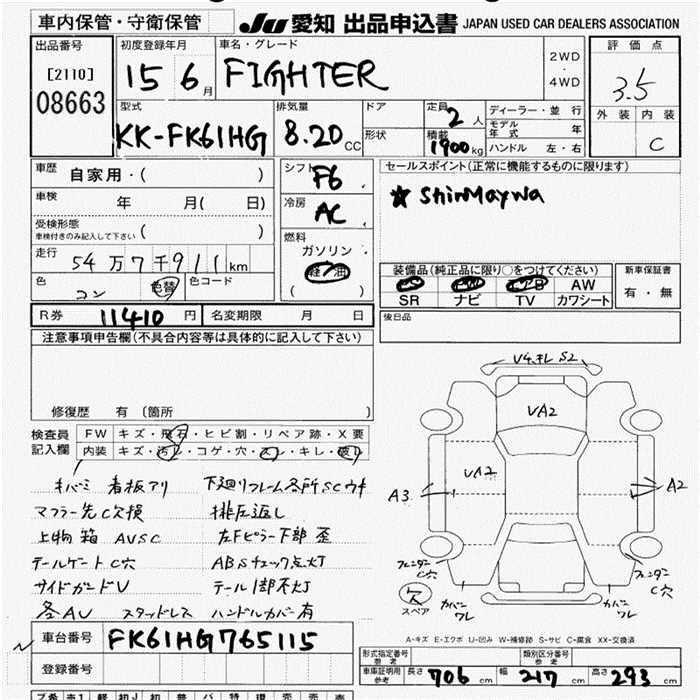 車内保管・守衛保管
JU 愛知 出品申込書 JAPAN USED CAR DEALERS ASSOCIATION
出品番号
[2110]
08663
初度登録年月
15 6 月
車名・グレード
FIGHTER
2WD
・
4WD
評価点
3.5
外装 内装
C
型式
KK-FK61HG
排気量
8.20 CC
ドア
形状
定員 2 人
積載 1900 kg
ディーラー・並行
モデル年式 年
ハンドル 左・右
車歴
自家用・( )
車検 年 月( 日)
受検形態
車検付きのみ記入して下さい ( )
走行
54万7千911 km
色 コン 色替 色コード
シフト F6
冷房 AC
燃料
ガソリン
軽油
( )
セールスポイント(正常に機能するものに限ります)
★ ShinMaywa
装備品(純正品に限り○をつけてください)
PS PW エアB AW
SR ナビ TV カワシート
新車保証書
有・無
R券 11410 円 名変期限 月 日
後日品
注意事項申告欄(不具合内容等は具体的に記入して下さい)
修復歴 有(箇所 )
検査員
記入欄
FW キズ・飛石・ヒビ割・リペア跡・X要
内装 キズ・汚レ・コゲ・穴・スレ・キレ・破レ
キバミ 看板アリ 下廻りフレーム各所SCサキ
マフラー先C欠損 排圧返し
上物 箱 AVSC 左Fピラー下部 歪
テールゲート C穴 ABSチェック点灯
サイドガードV テール1部不灯
各AV スタッドレス ハンドルカバー有
V4.キレ S2
VA2
VA2
A3
A2
フェンダー C穴
フェンダー C穴
スペア
カバー ワレ
カバー ワレ
A-キズ E-エクボ U-凹み W-補修跡 S-サビ C-腐食 XX-交換済
車台番号 FK61HG765115
登録番号
形式指定番号 参考
類別区分番号 参考
車庫証明用 参考 長さ 706 cm 幅 217 cm 高さ 293 cm